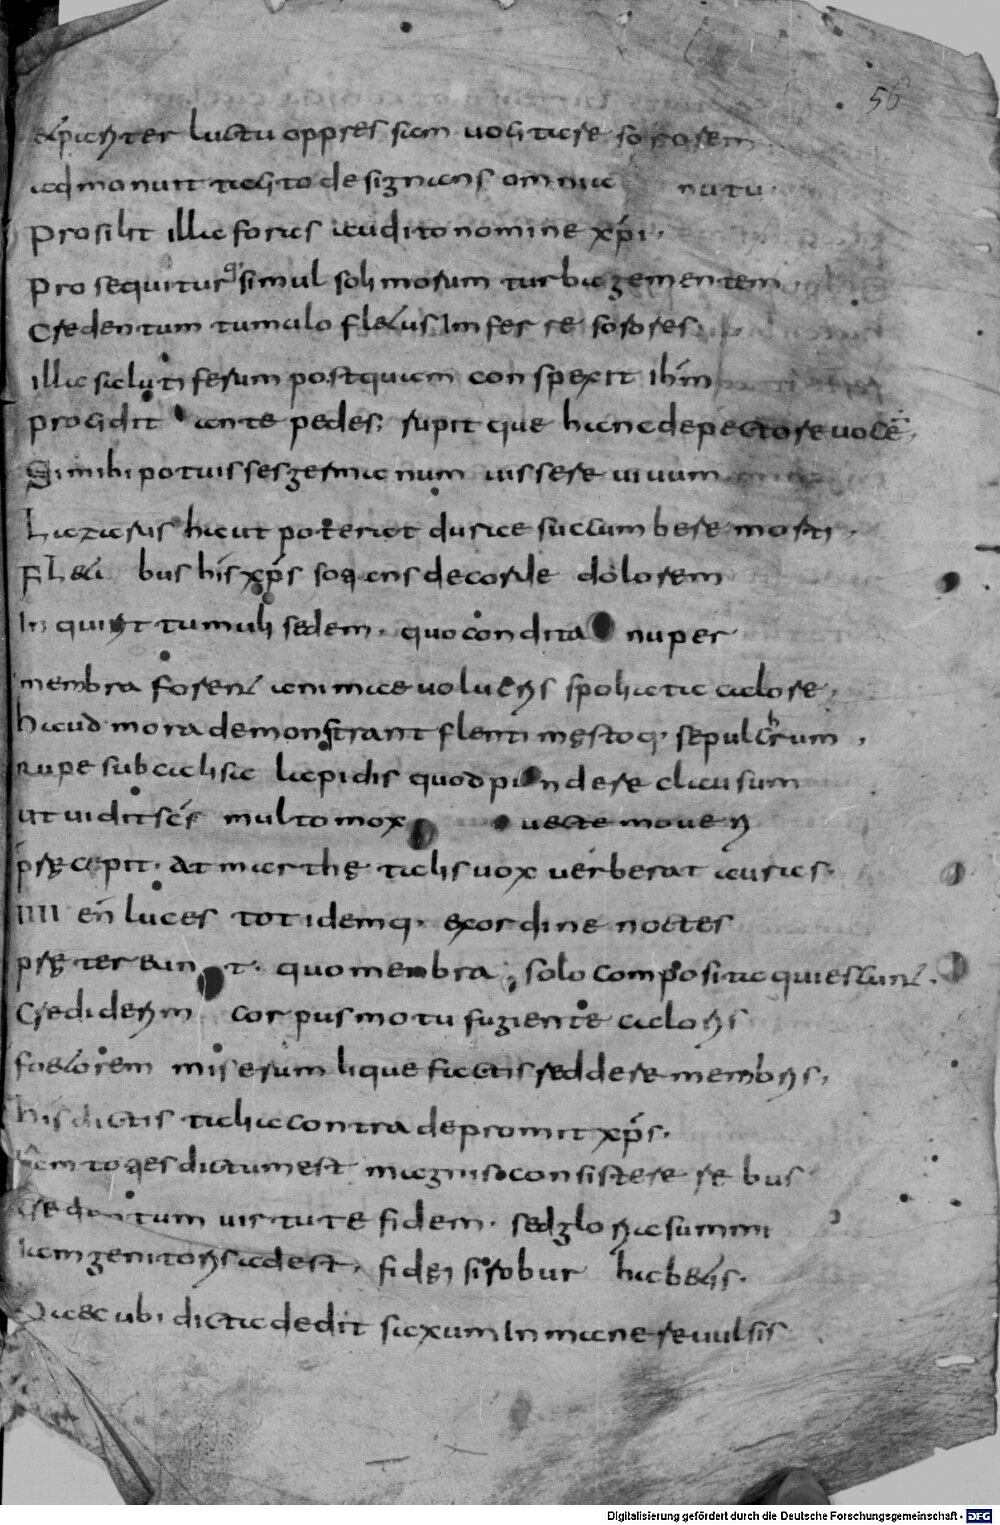 56
exripienter luctu oppressam uocitare sororem
admonuit tacito designans omnia nutu.
Prosilit illa foras audito nomine xpi.
Prosequitur q simul solimorum turba gementem
Credentum tumulo fletus Inferre sorores.
illa salutiferum postquam conspexit ihm
procidit ante pedes; rupit que hanc de pectore uocē.
Si mihi potuisses germanum uissere uiuum
Lazarus haut poterat durae succumbere morti.
Fleti bus his xps socians de corde dolorem
Inquirit tumuli sedem. quo condita nuper
membra forent animae uolucris spoliata calore,
haud mora demonstrant flenti męstoq. sepulchrum,
rupe sub caelisa lapidis quod pondere clausum
ut uidit scs multo mox uecte moueri
pręcepit. at marthę talis uox uerberat auras.
IIII en luces totidemq. ex ordine noctes
prętereunt. quo membra solo composita quiescunt.
Crediderim corpus motu fugiente caloris
foetorem miserum liquefactis reddere membris,
his dictis talia contra depromit xps.
iam toties dictum est magnis consistere rebus
credentum uirtute fidem. sed gloria summi
iam genitoris adest, fidęi si robur habetis.
Haec ubi dicta dedit saxum In mane reuulsis
Digitalisierung gefördert durch die Deutsche Forschungsgemeinschaft - DFG